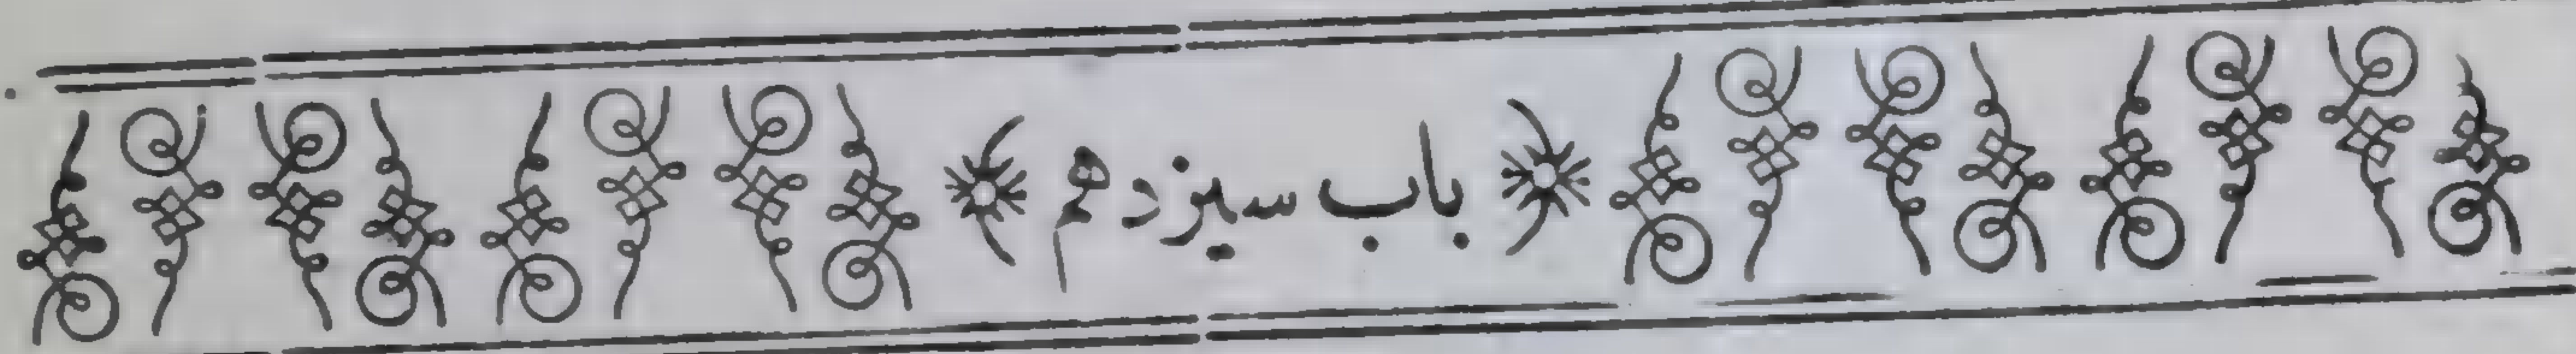 باب سیزدهم